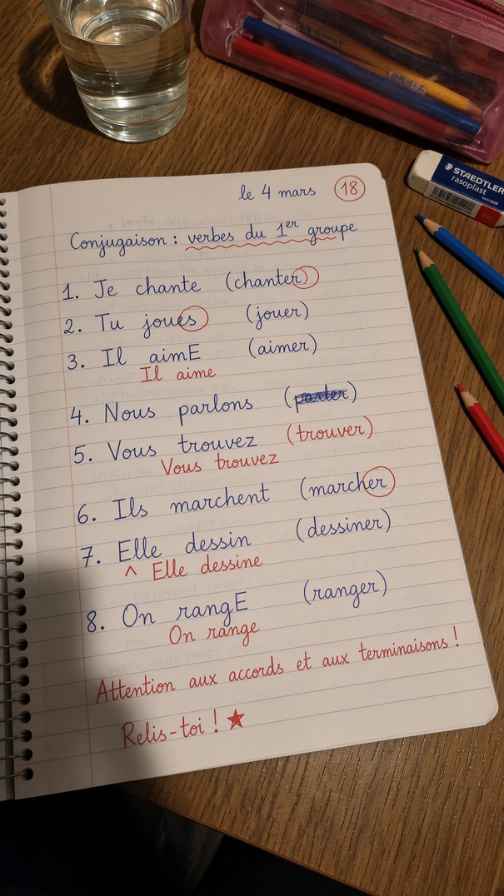 le 4 mars 18
Conjugaison : verbes du 1er groupe
1. Je chante (chanter)
2. Tu joues (jouer)
3. Il aimE (aimer)
Il aime
4. Nous parlons (parler)
5. Vous trouvez (trouver)
Vous trouvez
6. Ils marchent (marcher)
7. Elle dessin (dessiner)
^ Elle dessine
8. On rangE (ranger)
On range
Attention aux accords et aux terminaisons !
Relis-toi ! ★
STAEDTLER
rasoplast